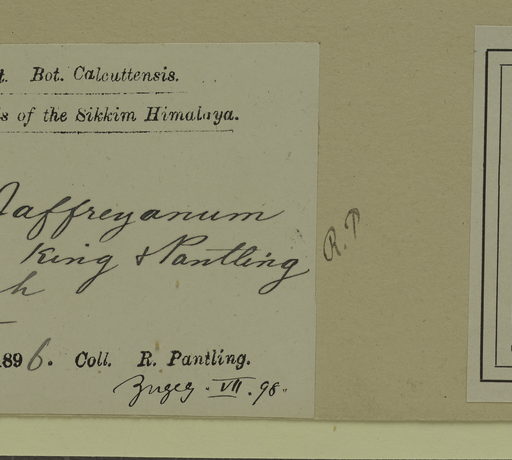 t. Bot. Calcuttensis.
s of the Sikkim Himalaya.
Jaffreyanum
King & Pantling
h
R. P
1896. Coll. R. Pantling.
VII. 98.